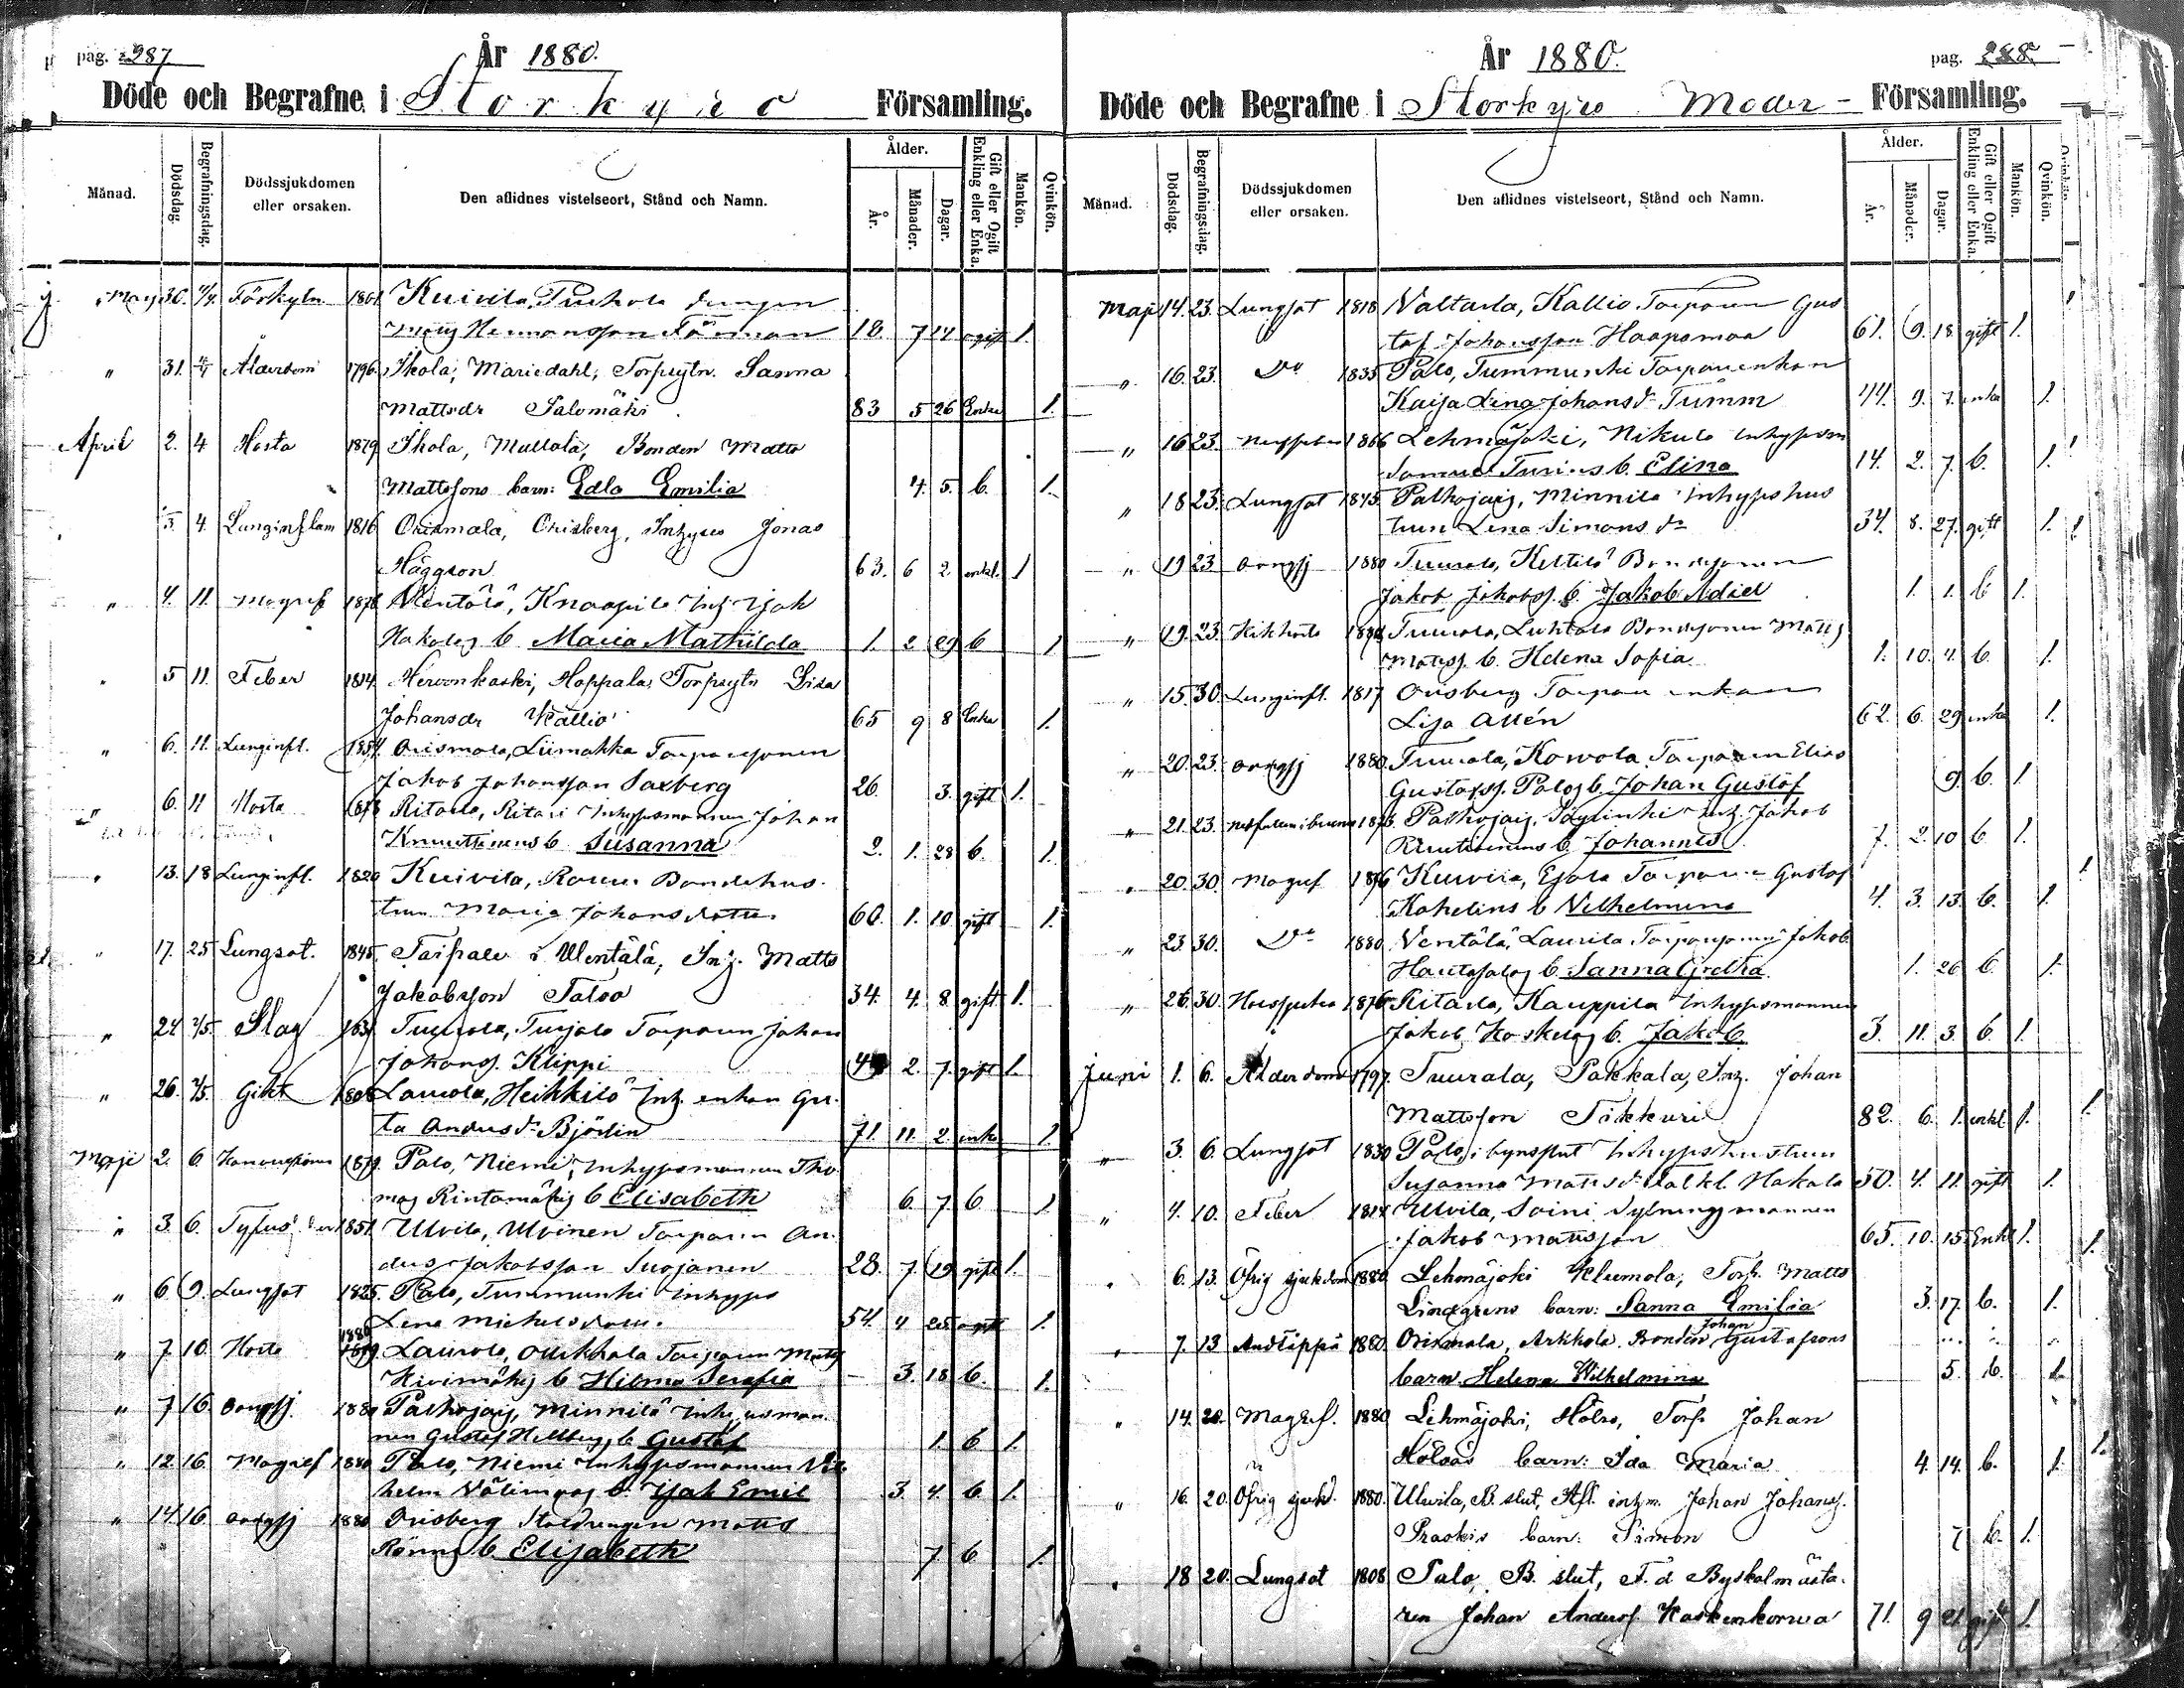 pag. 287
År 1880.
Döde och Begrafne i Storkyro Församling.
Månad. Dödsdag. Begrafningsdag. Dödssjukdomen eller orsaken. Den aflidnes vistelseort, Stånd och Namn. Ålder. År. Månader. Dagar. Gift eller Ogift Enkling eller Enka. Mankön. Qvinkön.
30. Förkyln 1861 Kuivila,
18. 7 14 ogift 1.
" 31. 4/4 Ålderdom 1796. Ikola, Mariedahl, Torpeytn. Sanna
Mattsdr Salomäki 83 5 26 Enka 1.
April 2. 4 Hosta 1879 Ikola, Mullola, Bonden Matts
Mattssons barn: Edla Emilia 4. 5. b. 1.
3. 4. Lunginflam 1816 Orismala, Orisberg, Inhyses Jonas
Häggson 63. 6 2. enkl. 1
" 4. 11. Magref 1878 Wentälä, Knaapila Inh Isak
Hakalas b Maria Mathilda 1. 2 29 b 1
" 5 11. Feber 1814. Hervonkoski, Hoppala, Torpeytn Lisa
Johansdr Kallio 65 9 8 Enka 1.
" 6. 11. Lunginfl. 1854. Orismala, Liimakka Torparesonen
Jakob Johansson Saxberg 26 3. gift 1.
" 6. 11 Hosta 1878 Ritaala, Ritari Inhysesmannen Johan
Knuuttinens b Susanna 2. 1. 28 b. 1.
" 13. 18 Lunginfl. 1820 Kuivila, Bondehus
trun Maria Johansdotter 60. 1. 10 gift 1.
" 17. 25 Lungsot. 1845. Taipale i Wentälä, Inh. Matts
Jakobsson Taloo 34. 4. 8 gift 1.
" 24 2/5. Slag Tuurala, Turjala Torparen Johan
Johanss. Klippi 2. 7. gift 1.
" 26. 2/5. Gikt 1808 Laurola, Heikkilä Inh. enkan Gre
ta Andersdr Björlin 71. 11. 2 enka 1.
Maji 2. 6. 1879. Palo, Niemi, Inhysesmannen Tho
mas Rintamäkis b Elisabeth 6. 7 b 1
" 3. 6. Tyfus 1851. Ulvila, Ulvinen Torparen An
ders Jakobsson Suojanen 28. 7 19 gift 1.
" 6 9. Lungsot 1825. Palo, Tummunki Inhyses
Lena Michelsdotter. 54. 4 25 ogift 1.
" 7. 10. Hosta 1880 Laurola, Torparen Matts
Kivimäkis b Hilma Serafia 3. 18 b. 1.
" 7 16. 1880 Palhojais, Minnilä Inhysesman
nen Gustaf Hellbergs b Gustaf 1. b 1.
" 12. 16. Magref 1880 Palo, Niemi Inhysesmannen Vil
helm Välimaas b. Isak Emil 3. 4. b. 1.
" 14. 16 1880 Orisberg Stoldrengen Matts
Rönns b Elisabeth 7 b 1.
År 1880.
pag. 288
Döde och Begrafne i Storkyro Moder-Församling.
Månad. Dödsdag. Begrafningsdag. Dödssjukdomen eller orsaken. Den aflidnes vistelseort, Stånd och Namn. Ålder. År. Månader. Dagar. Gift eller Ogift Enkling eller Enka. Mankön. Qvinkön.
Maji 14. 23. Lungsot 1818 Valtarla, Kallio Torparen Gus
taf Johansson Haapamaa 61. 9. 18. gift 1.
" 16. 23. Do 1835 Palo, Tummunki Torpareenkan
Kaisa Lena Johansdr Tumm 44. 9. 7. enka 1.
" 16 23. 1866 Lehmäjoki, Nikula Inhysesm
Samuel b. Elina 14. 2. 7. b. 1.
" 18 23. Lungsot 1845. Palhojais, Minnila Inhyseshus
trun Lena Simonsdr 34. 8. 27. gift 1.
" 19 23 1880 Tuurala, Kettilä Bondesonen
Jakob Jakobss. b. Jakob Adiel 1. 1. b 1.
" 19. 23. Kikhosta Tuurala, Luhtala Bondesonen Matts
Matss. b. Helena Sofia 1. 10. 4. b. 1.
" 15. 30. Lunginfl. 1817 Orisberg Torpareenkan
Lisa Allén 62. 6. 29 enka 1.
" 20. 23. 1880. Tuurala, Kowola Torparen Elias
Gustafss. Palos b. Johan Gustaf 9. b. 1
" 21. 23. Palhojais, Inh. Jakob
Knuutinens b. Johannes 7. 2. 10 b. 1.
" 20. 30. Magref 1876 Kuivila, Torparen Gustaf
Kahelins b Vilhelmina 4. 3. 13. b. 1.
" 23. 30. Do 1880 Ventälä, Laurila Torparesonen Jakob
b. Sanna Greta 1. 26 b. 1.
" 26. 30. 1876 Ritaala, Kauppila Inhysesmannen
Jakob Koskelas b. Jakob. 3. 11. 3. b. 1.
Juni 1. 6. Ålderdom 1797. Tuurala, Pakkala, Inh. Johan
Mattsson Tikkuri 82. 6. 1. enkl. 1.
" 3. 6. Lungsot 1830 Palo, i bynsslut Inhyseshustrun
Susanna Mattsdr Hakala 50. 4. 11. gift 1.
" 4. 10. Feber 1814 Ulvila, Soini Sytningsmannen
Jakob Mattsson 65. 10. 15. Enkl 1.
" 6. 13. Öfrig sjukdom 1880 Lehmäjoki Klemola, Torp. Matts
Lindgrens barn: Sanna Emilia 3. 17. b. 1.
" 7. 13 Andtäppa 1880. Orismala, Arkkola. Bonden Johan Gustafsons
barn Helena Wilhelmina 5. b. 1.
" 14. 20. Magref. 1880 Lehmäjoki, Hölsö, Torp. Johan
Hölsös barn: Ida Maria 4. 14. b. 1.
" 16. 20. Öfrig sjukd. 1880. Ulwila, B. slut, Afl. inh.m. Johan Johanss.
Praskis barn: Simon 7. b. 1.
" 18 20. Lungsot 1808 Palo, B. slut, F.d Byskolmästa
ren Johan Anderss. Koskenkorwa 71. 9 21. gift 1.